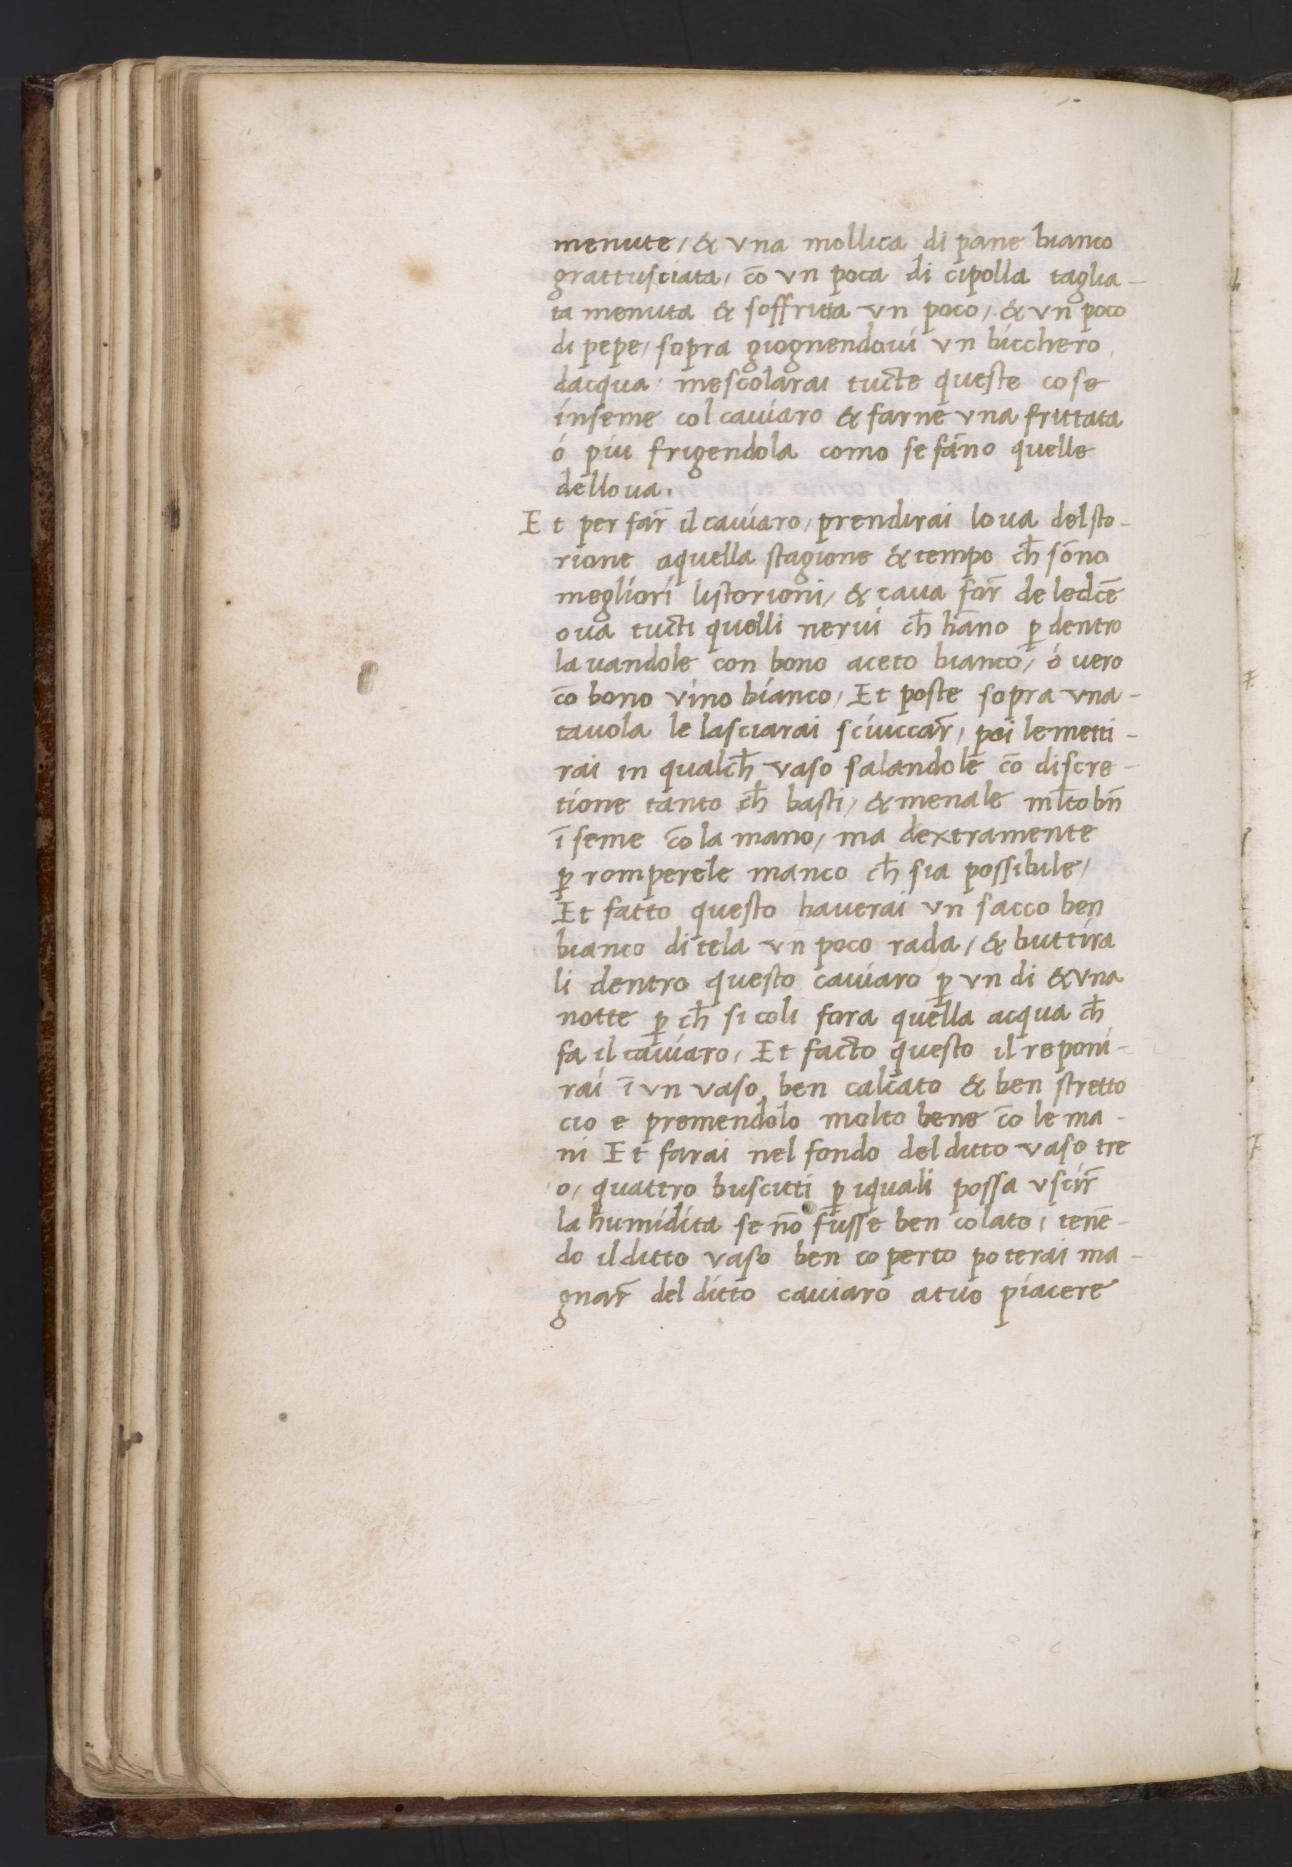 menute, & una mollica di pane bianco
grattusciata, cō un poca di cipolla taglia-
ta menuta & soffritta un poco, & un poco
di pepe, sopra giognendovi un bicchero
dacqua, mescolarai tucte queste cose
inseme col caviaro & farne una frittata
ó piu frigendola como se fāno quelle
dellova.
Et per far̄ il caviaro, prendirai lova delsto-
rione aquella stagione & tempo ch̄ sōno
megliori listorioni, & cava for̄ de ledcē
ova tucti quelli nervi ch̄ hāno ꝑ dentro
lavandole con bono aceto bianco, ó vero
cō bono vino bianco, Et poste sopra una-
tavola le lasciarai sciuccar̄, poi lemetti-
rai in qualch̄ vaso salandole cō discre-
tione tanto ch̄ basti, & menale ml̄to bn̄
īseme cō la mano, ma dextramente
ꝑ romperele manco ch̄ sia possibile,
Et fatto questo haverai un sacco ben
bianco di tela un poco rada, & buttira
li dentro questo caviaro ꝑ un di & una
notte ꝑ ch̄ si coli fora quella acqua ch̄
fa il caviaro, Et facto questo il reponi-
rai ī un vaso ben calcato & ben stretto
cio e premendolo molto bene cō le ma-
ni Et farai nel fondo del ditto vaso tre
o, quattro busciti ꝑ iquali possa uscir̄
la humidita se nō fusse ben colato, tenē-
do il ditto vaso ben coperto poterai ma-
gnar̄ del ditto caviaro a tuo piacere